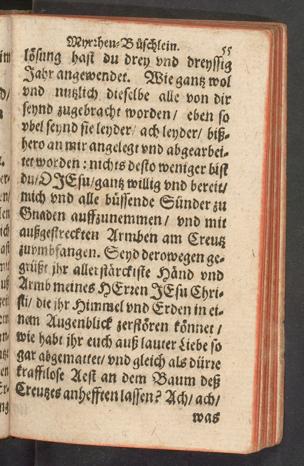 Myrrhen-Büschlein. 55
lösung hast du drey vnd dreyssig
Jahr angewendet. Wie gantz wol
vnd nutzlich dieselbe alle von dir
seynd zugebracht worden / eben so
vbel seynd sie leyder / ach leyder / biß-
hero an mir angelegt vnd abgearbei-
tet worden : nichts desto weniger bist
du / O JEsu / gantz willig vnd bereit /
mich vnd alle büssende Sünder zu
Gnaden auffzunemmen / vnd mit
außgestreckten Armben am Creutz
zuvmbfangen. Seyd derowegen ge-
grüßt jhr allerstärckiste Händ vnd
Armb meines HErren JEsu Chri-
sti / die jhr Himmel vnd Erden in ei-
nem Augenblick zerstören könnet /
wie habt jhr euch auß lauter Liebe so
gar abgemattet / vnd gleich als dürre
krafftlose Aest an dem Baum deß
Creutzes anhefften lassen? Ach / ach /
was